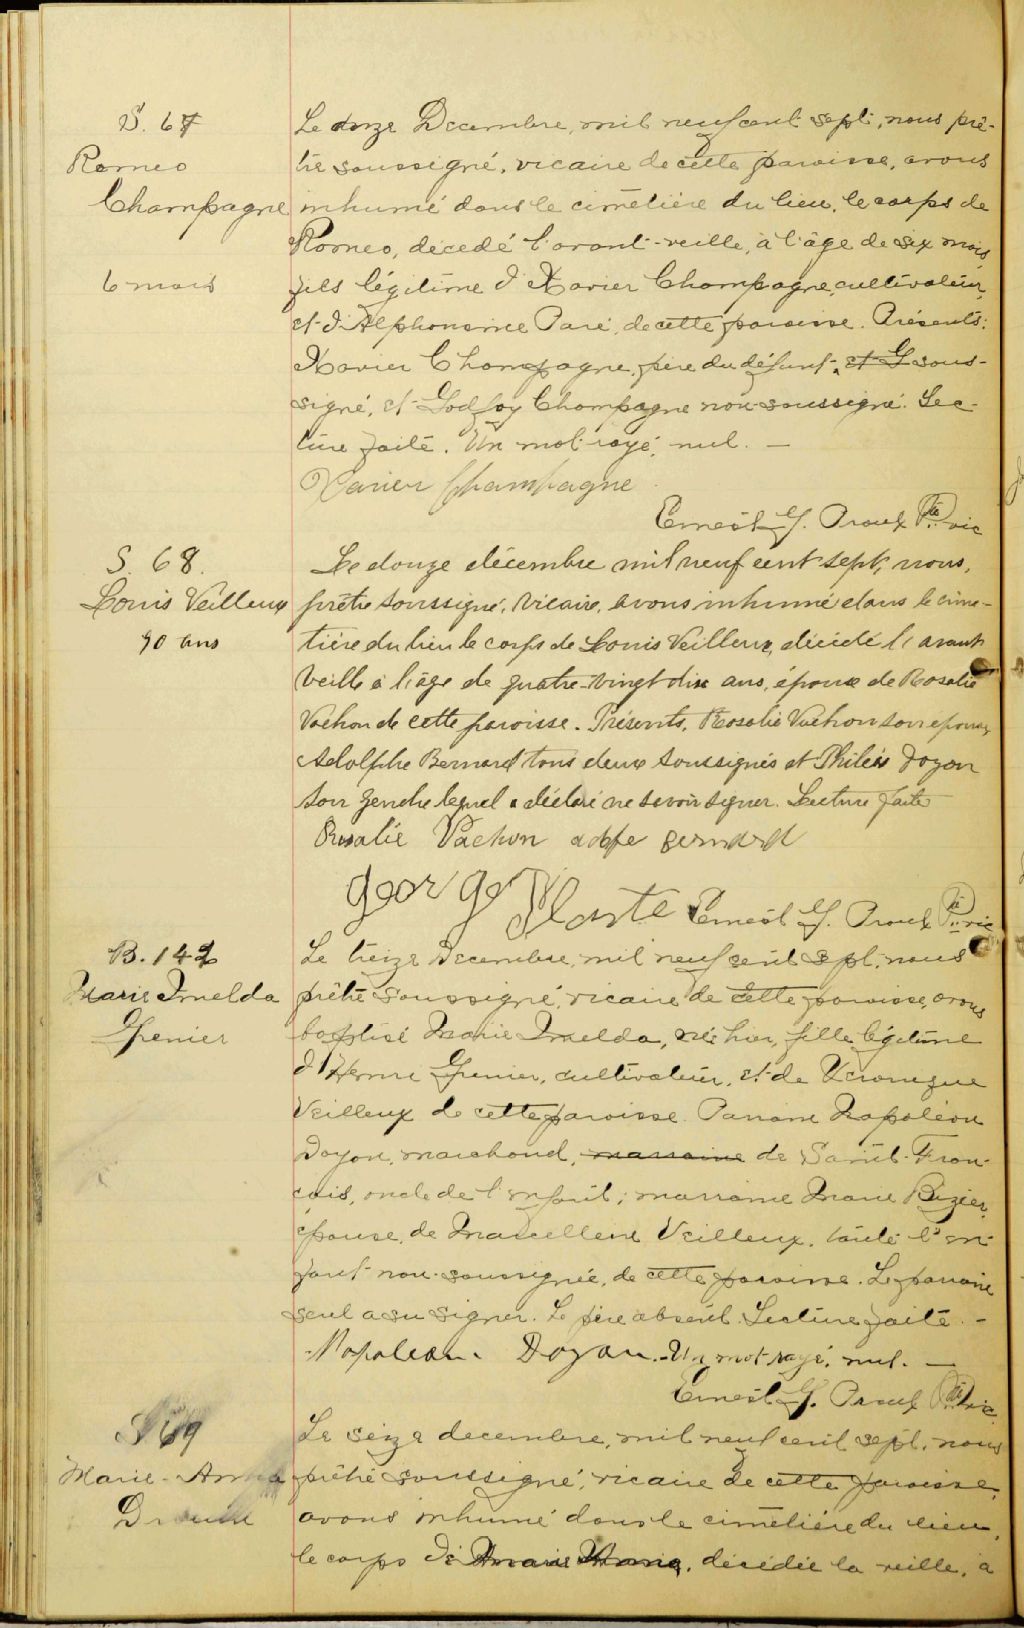 S. 67
Romeo
Champagne
6 mois
Le onze Decembre, mil neuf cent sept, nous prê-
tre soussigné, vicaire de cette paroisse, avons
inhumé dans le cimetière du lieu, le corps de
Romeo, décedé l'avant-veille, à l'âge de six mois,
fils légitime d'Xavier Champagne, cultivateur,
et d'Alphonsine Paré, de cette paroisse. Présents:
Xavier Champagne, père du défunt, et G sous-
signé, et Godfoy Champagne non soussigné. Lec-
ture faite. Un mot rayé, nul. —
Xavier Champagne
Ernest G. Proulx Ptre vic
S. 68.
Louis Veilleux
90 ans
Le douze décembre mil neuf cent sept, nous,
prêtre soussigné, vicaire, avons inhumé dans le cime-
tière du lieu le corps de Louis Veilleux, décédé l'avant
veille à l'âge de quatre-vingt dix ans, époux de Rosalie
Vachon de cette paroisse. Présents, Rosalie Vachon son épouse,
Adolphe Bernard tous deux soussignés et Philéas Doyon
son gendre lequel a déclaré ne savoir signer. Lecture faite
Rosalie Vachon adofe bernard
george Plante Ernest G. Proulx Ptre vic
B. 142
Marie Imelda
Grenier
Le treize Decembre, mil neuf cent sept, nous
prêtre soussigné, vicaire de cette paroisse, avons
baptisé Marie Imelda, née hier, fille légitime
d'Henri Grenier, cultivateur, et de Veronique
Veilleux de cette paroisse. Parrain Napoléon
Doyon, marchand, marraine de Saint-Fran-
çois, oncle de l'enfant; marraine Marie Bizier,
épouse de Marcellin Veilleux, tante l'en-
fant non-soussignée, de cette paroisse. Le parrain
seul a su signer. Le père absent. Lecture faite. -
Napoleon Doyon. Un mot rayé, nul. —
Ernest G. Proulx Ptre vic.
S 69
Marie-Anna
Drouin
Le seize decembre, mil neuf cent sept, nous
prêtre soussigné, vicaire de cette paroisse,
avons inhumé dans le cimetière du lieu,
le corps de Marie Anna, décédée la veille, à